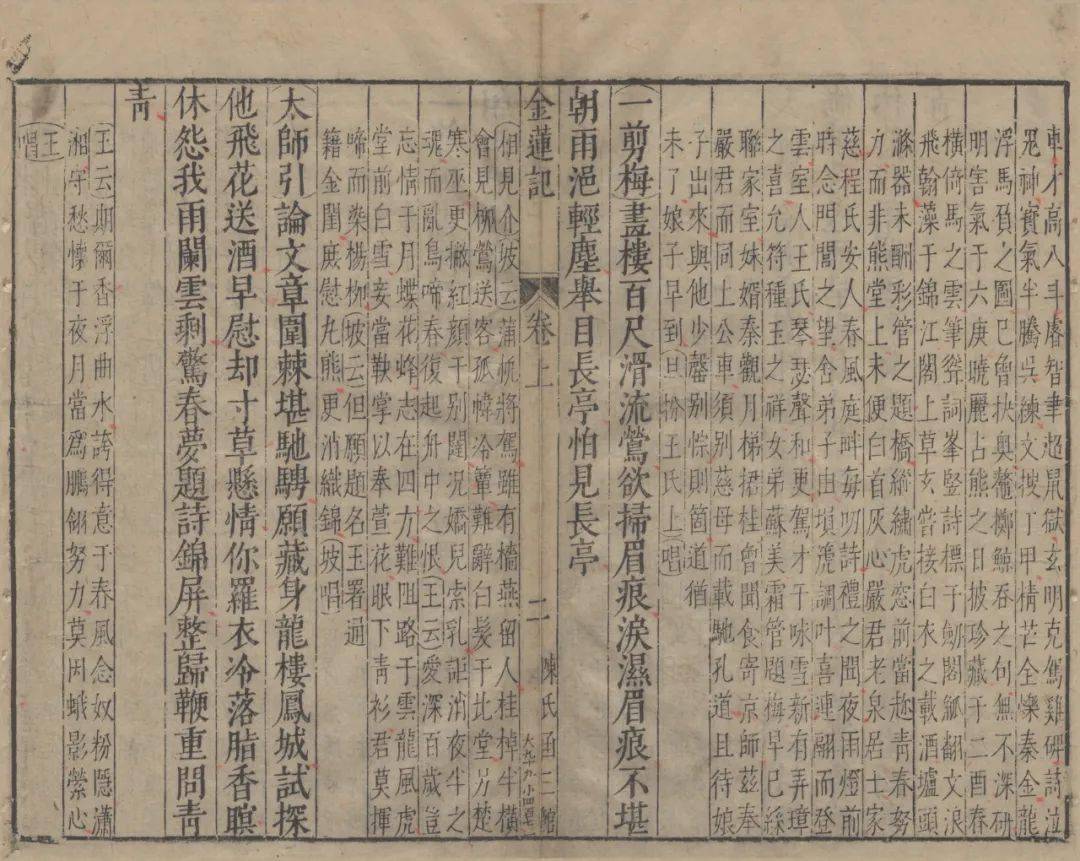 車才高八斗睿智聿超鼎獄玄明克篤雞碑詩泣
鬼神寶氣半騰吳練文搜丁甲情芒全爍秦金龍
浮馬負之圖已曾抉奧鼇擲鯨吞之句無不深研
明害氣于六庚曉麗占熊之日披珍藏于二酉春
橫倚馬之雲筆聳詞峯豎詩標于劒閣觚翻文浪
飛翰藻于錦江閣上草玄嘗接白衣之載酒壚頭
滌器未酬彩管之題橋縱繡虎窓前當趂靑春努
力而非熊堂上未便白首灰心嚴君老泉居士家
慈程氏安人春風庭畔每叨詩禮之聞夜雨燈前
時念門閭之望舍弟子由塤箎調叶喜連翩而登
雲室人王氏琴瑟聲和更駕才于咏雪新有弄璋
之喜允符種玉之祥女弟蘇美霜管題梅早已絲
聯家室妹婿秦觀月梯捃桂曾聞食寄京師茲奉
嚴君而同上公車須別慈母而載馳孔道且待娘
子出來與他少罄別悰則箇道猶
未了娘子早到旦扮王氏上唱
一剪梅畫樓百尺滑流鶯欲掃眉痕淚濕眉痕不堪
朝雨浥輕塵舉目長亭怕見長亭
金蓮記 卷上 二 陳氏函三館
相見介坡云蒲帆將駕雖有檣燕留人桂棹半橫
會見栁鶯送客孤幃冷簟難辭白髮于北堂片楚
寒巫更撇紅顏于別閨況嬌兒索乳詎消夜半之
魂而亂鳥啼春復起舟中之恨王云愛深百歲豈
忘情于月蝶花蜂志在四方難阻路于雲龍風虎
堂前白雪妾當執掌以奉萱花眼下靑衫君莫揮
啼而染楊栁坡云但願題名玉署通
籍金閨庶慰九熊更消織錦坡唱
太師引論文章圍棘堪馳騁願藏身龍樓鳳城試探
他飛花送酒早慰却寸草懸情你羅衣冷落脂香瞑
休怨我雨闌雲剩驚春夢題詩錦屏整歸鞭重問靑
靑
王云期爾香浮曲水誇得意于春風念奴粉隱瀟
湘守愁懷于夜月當爲鵬翮努力莫因蛾影縈心
王唱